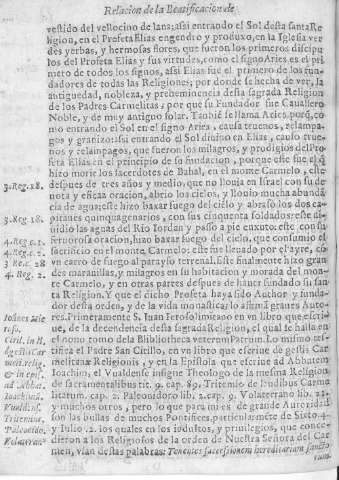 Relacion de la Beatificacion de
vestido del vellocino de lana: assi entrando el Sol desta santa Re
ligion, en el Profeta Elias engendro y produxo, en la Iglesia ver
des yerbas, y hermosas flores, que fueron los primeros discipu
los del Profeta Elias y sus virtudes, como el signo Aries es el pri
mero de todos los signos, assi Elias fue el primero de los fun-
dadores de todas las Religiones; por donde se hecha de ver, la
antiguedad, nobleza, y prehemínencia desta sagrada Religion
de los Padres Carmelitas; por que su Fundador fue Cauallero
Noble, y de muy antiguo solar. Tanbiē se llama Aries, porq̄, co
mo entrando el Sol en el signo Aries, causa truenos, relampa-
gos y granizo: assi entrando el Sol diuino en Elias, causo true-
nos y relampagos, que fueron los milagros, y prodigios del Pro
feta Elias en el principio de su fundacion, porque este fue el q̄
hizo morir los sacerdotes de Bahal, en el monte Carmelo, este
3. Reg. 18. despues de tres años y medio, que no llouia en Israel con su de-
uota y eficaz oracion, abrio los cielos, y llouio mucha abundā
cia de agua; este hizo baxar fuego del cielo y abraso los dos ca-
3. Reg. 18. pitanes quinquagenarios, con sus cinquenta soldados: este di-
uidio las aguas del Rio Iordan y passo a pie enxuto: este con su
4. Reg. c. 1. feruorosa oracion, hizo baxar fuego del cielo, que consumio el
4. Reg. c. 2. sacrificio en el monte, Carmelo: este fue lleuado por el ayre, cō
3. Re. c. 28 vn carro de fuego al parayso terrenal. Este finalmente hizo gran
4. Reg. 2. des marauillas, y milagros en su habitacion y morada del mon-
te Carmelo, y en otras partes despues de hauer fundado su san
ta Religion. Y que el dicho Profeta haya sido Author y funda-
dor desta orden, y de la vida monastica; lo afirmā graues Auto-
res. Primeramente S. Iuan Ierosolimitano en vn libro que escri-
ue, de la decendencia desta sagrada Religion, el qual se halla en
el nono tomo dela Bibliotheca veterum Patrum. Lo mismo tes-
tifica el Padre San Cirilo, en vn libro que escriue de gestis Car
melitanæ Religionis, y en la Epistola que escriue ad Abbatem
Ioachim, el Vualdense insigne Theologo de la mesma Religion
de sacramentalibus tit. 9. cap. 89. Tritemio de laudibus Carme
litarum. cap. 2. Paleonidoro lib. 2. cap. 9. Volaterrano lib. 21.
y muchos otros, pero lo que para mi es de grande Autoridad
son las bullas de muchos Pontifices, particularmēte de Sixto. 4.
y Iulio. 2. los quales en los indultos, y priuilegios, que conce-
dieron a los Religiosos de la orden de Nuestra Señora del Car
men, vsan destas palabras: Tenentes successionem hereditariam sancto
rum